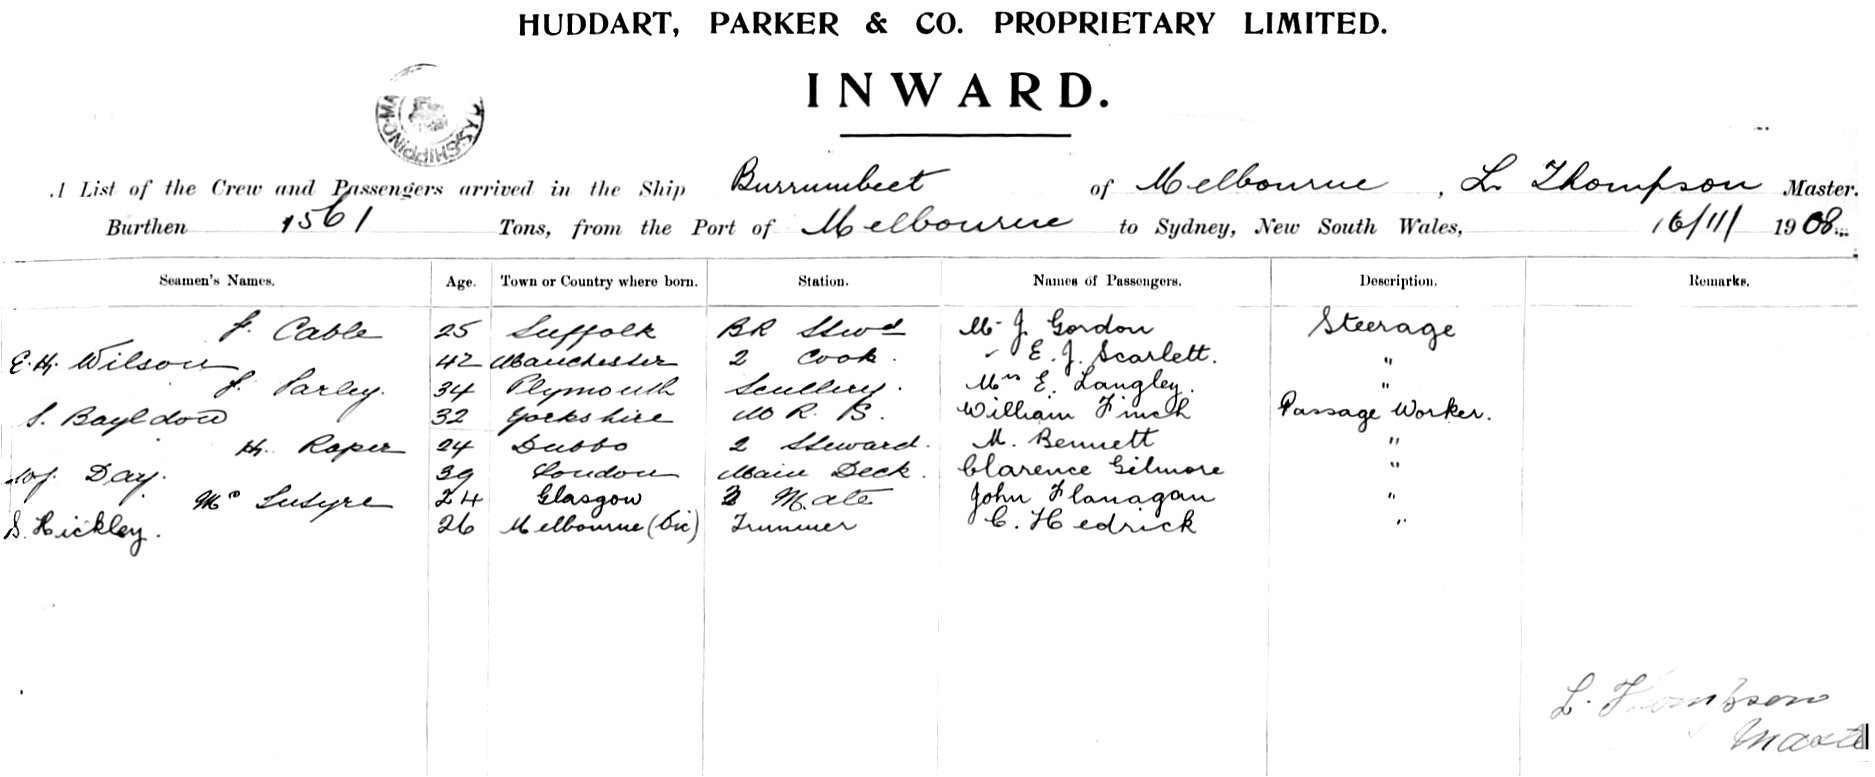 HUDDART, PARKER & CO. PROPRIETARY LIMITED.
INWARD.
SHIPPING MA SY
A List of the Crew and Passengers arrived in the Ship Burrumbeet of Melbourne, L. Thompson Master.
Burthen 1561 Tons, from the Port of Melbourne to Sydney, New South Wales, 16/11/ 1908
Seamen's Names. Age. Town or Country where born. Station. Names of Passengers. Description. Remarks.
J. Cable 25 Suffolk BR Stwd Mr J. Gordon Steerage
E. H. Wilson 42 Manchester 2 Cook. " E. J. Scarlett. "
J. Parley. 34 Plymouth Scullery. Mrs E. Langley. "
S. Bayldon 32 Yorkshire M R. S. William Finch Passage Worker.
H. Raper 24 Dubbo 2 Steward. M. Bennett "
Day. 39 London Main Deck. Clarence Gilmore "
Mc 24 Glasgow 2 Mate John Flanagan "
S. Hickley. 26 Melbourne (Vic) Trimmer C. Hedrick "
L. Thompson
Master